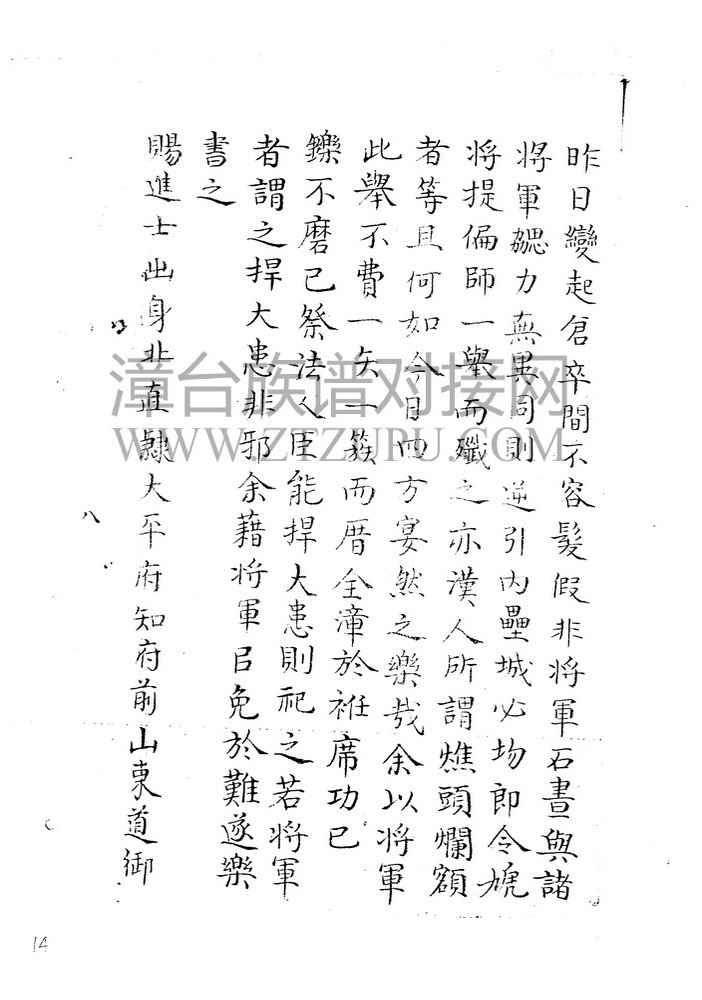 昨日變起倉卒間不容髮假非将軍石畫與諸
将軍勰力無異同則逆引内壘城必拗即令虓
将提偏師一舉而殲之亦漢人所謂燋頭爛額
者等且何如今日四方宴然之樂哉余以将軍
此舉不費一矢一簇而厝全漳於袵席功已
鑠不磨已祭法人臣能捍大患則祀之若将軍
者謂之捍大患非邪余藉将軍㠯免於難遂樂
書之
賜進士出身北直隸大平府知府前山東道御
八
漳台族谱对接网
WWW.ZTZUPU.COM
14